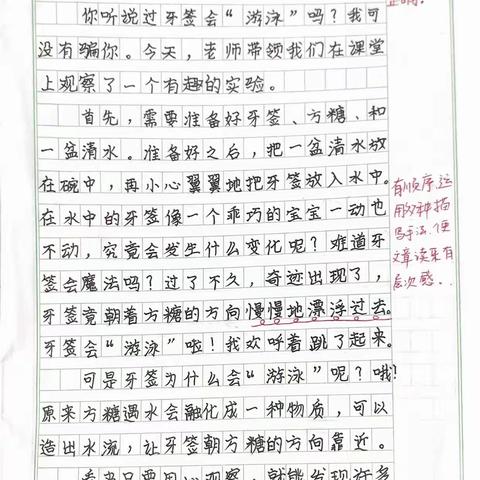 你听说过牙签会“游泳”吗？我可
没有骗你。今天，老师带领我们在课堂
上观察了一个有趣的实验。
首先，需要准备好牙签、方糖、和
一盆清水。准备好之后，把一盆清水放
在碗中，再小心翼翼地把牙签放入水中。
在水中的牙签像一个乖巧的宝宝一动也
不动，究竟会发生什么变化呢？难道牙
签会魔法吗？过了不久，奇迹出现了，
牙签竟朝着方糖的方向慢慢地漂浮过去。
牙签会“游泳”啦！我欢呼着跳了起来。
可是牙签为什么会“游泳”呢？哦？
原来方糖遇水会融化成一种物质，可以
造出水流，让牙签朝方糖的方向靠近。
看来只要用心观察，就能发现许多
有顺序,运
用多种描
写手法,使
文章读来有
层次感..